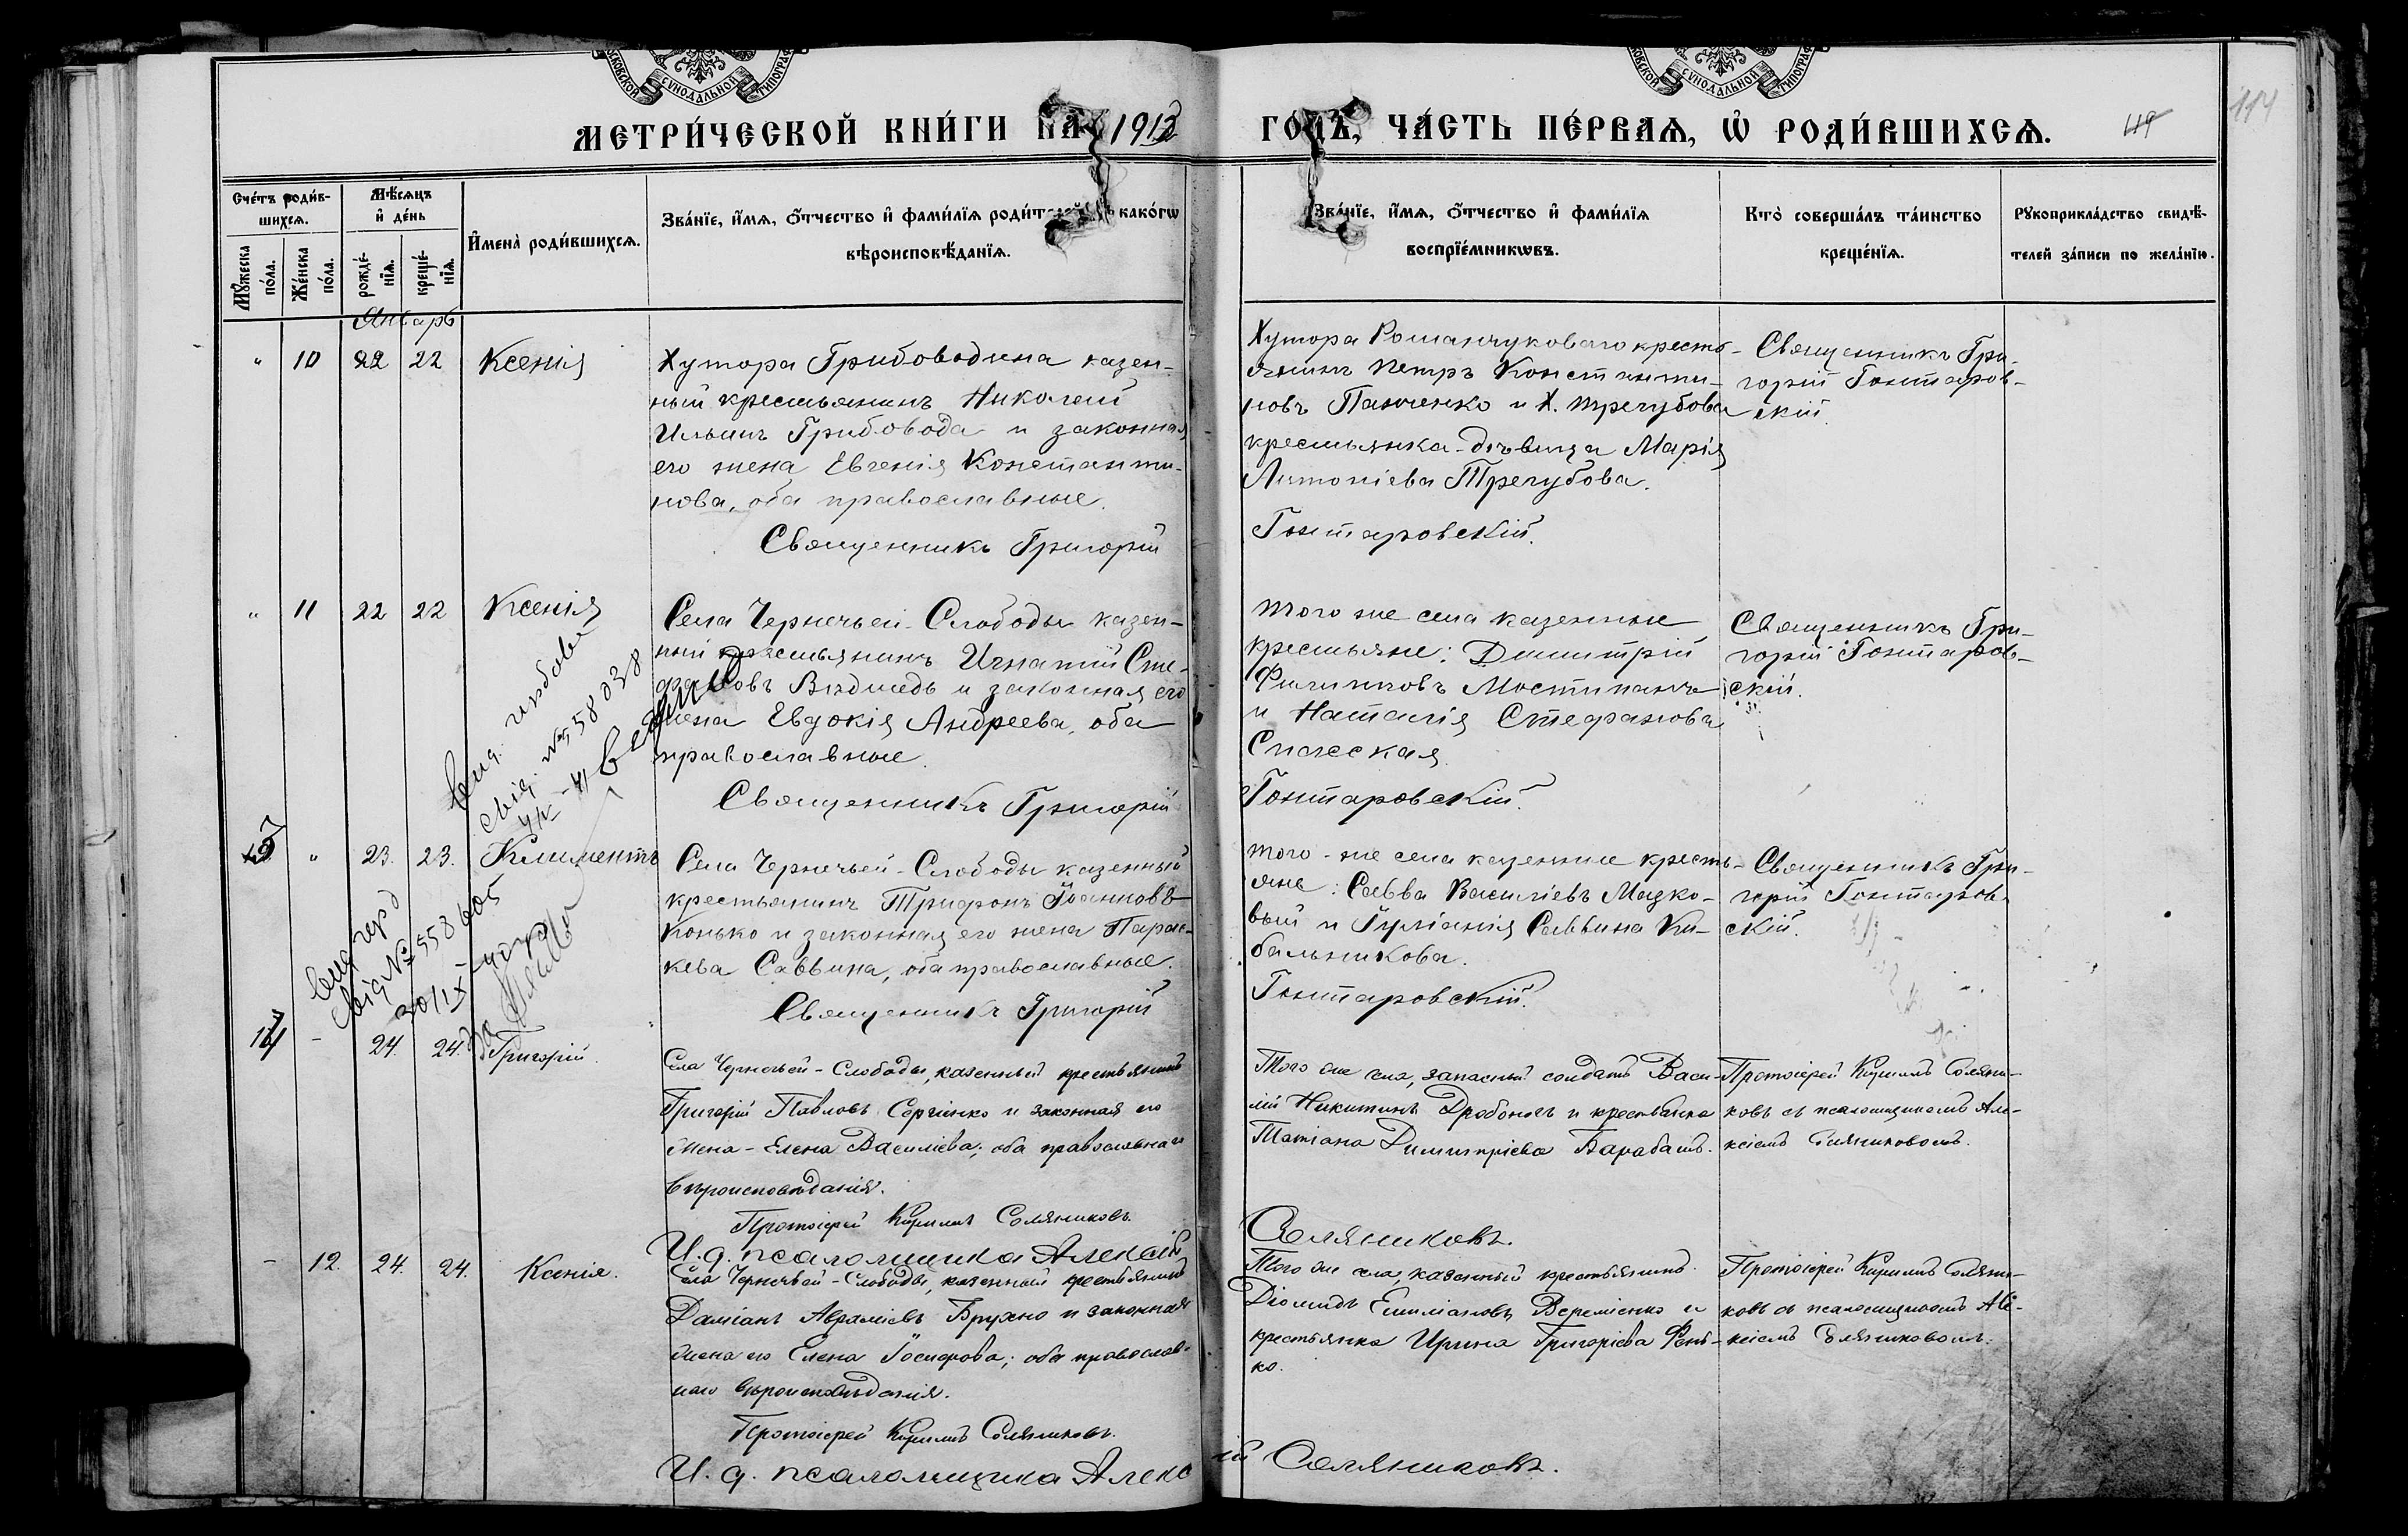 МОСКОВСКОЙ СѴНОДАЛЬНОЙ ТИПОГРАФ
МОСКОВСКОЙ СѴНОДАЛЬНОЙ ТИПОГРАФ
МЕТРИ́ЧЕСКОЙ КНИ́ГИ НА 1913 ГО́ДЪ, ЧА́СТЬ ПЕ́РВАЯ, Ѽ РОДИ́ВШИХСѦ.
119
114
Сче́тъ роди́в-
шихсѧ.
Мꙋ́жеска
по́ла.
Же́нска
по́ла.
Мѣ́сѧцъ
и҆ де́нь
рожде́-
нїѧ.
креще́-
нїѧ.
И҆мена̀ роди́вшихсѧ.
Зва́нїе, и҆́мѧ, ѻ҆́тчество и҆ фами́лїѧ роди́телей како́гѡ
вѣроисповѣ́данїѧ.
Зва́нїе, и҆́мѧ, ѻ҆́тчество и҆ фами́лїѧ
воспрїе́мникѡвъ.
Кто̀ соверша́лъ та́инство
креще́нїѧ.
Рꙋкоприкла́дство свидѣ́-
телей за́писи по жела́нїю.
Январь
" 10 22 22 Ксенія
Хутора Грибоводина казен-
ный крестьянинъ Николай
Ильинъ Грибовода и законная
его жена Евгенія Константи-
нова, оба православные.
Священникъ Григорій
Хутора Романчуковаго кресть-
янинъ Петръ Константи-
новъ Панченко и Х. Трегубова
крестьянка-дѣвица Марія
Антоніева Трегубова.
Гонтаровскій.
Священникъ Гри-
горій Гонтаров-
скій.
" 11 22 22 Ксенія
Села Чернечьей-Слободы казен-
ный крестьянинъ Игнатій Сте-
фановъ Видмедь и законная его
жена Евдокія Андреева, оба
православные.
Священникъ Григорій
Того же села казенные
крестьяне: Димитрій
Филипповъ Мостипанъ
и Наталія Стефанова
Спасская
Гонтаровскій.
Священникъ Гри-
горій Гонтаров-
скій.
" 23. 23. Климентъ
Села Чернечьей-Слободы казенный
крестьянинъ Трифонъ Іоанновъ
Конько и законная его жена Парас-
кева Саввина, оба православные.
Священникъ Григорій
Того-же села казенные кресть-
яне: Савва Василіевъ Мацко-
вый и Іуліанія Саввина Ки-
бальникова.
Гонтаровскій.
Священникъ Гри-
горій Гонтаров-
скій.
- 24. 24. Григорій.
Села Чернечьей-Слободы, казенный крестьянинъ
Григорій Павловъ Сергіенко и законная его
жена-Елена Василіева; оба православнаго
вѣроисповѣданія.
Протоіерей Кириллъ Соляниковъ.
И. д. псаломщика Алексій
Того же села, запасный солдатъ Васи-
лій Никитинъ Дробоногъ и крестьянка
Татіана Димитріева Барабашъ.
Соляниковъ.
Протоіерей Кириллъ Соляни-
ковъ съ псаломщикомъ Але-
ксіемъ Соляниковомъ.
- 12. 24. 24. Ксенія.
Села Чернечьей-Слободы, казенный крестьянинъ
Даміанъ Авраміевъ Брухно и законная
жена его Елена Іосифова; оба православ-
наго вѣроисповѣданія.
Протоіерей Кириллъ Соляниковъ.
И. д. псаломщика Алексій Соляниковъ.
Того же села, казенный крестьянинъ
Діомидъ Емиліановъ Веремѣенко и
крестьянка Ирина Григоріева Фень-
ко.
Протоіерей Кириллъ Соляни-
ковъ съ псаломщикомъ Але-
ксіемъ Соляниковомъ.